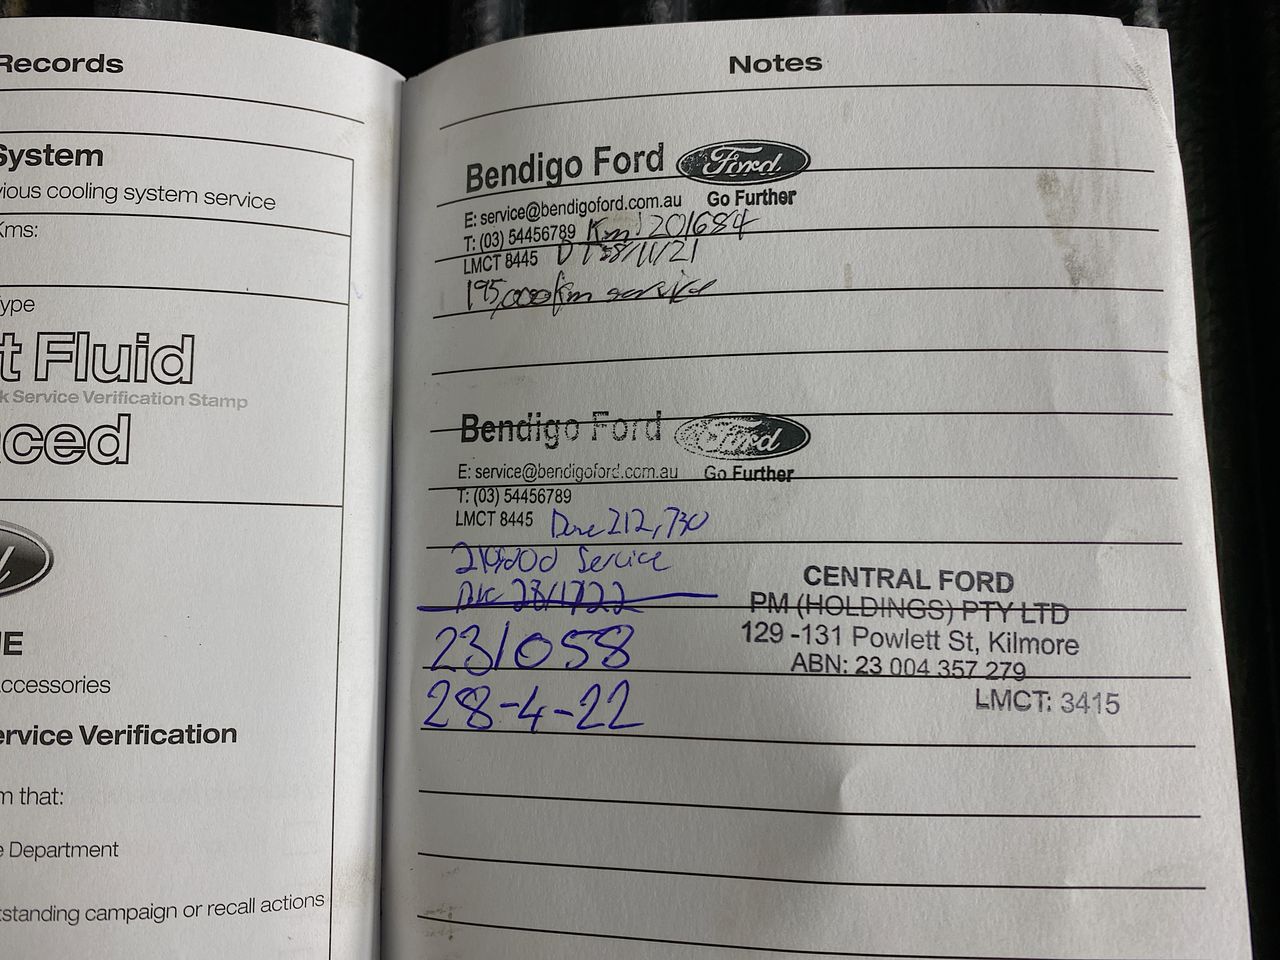 Records
System
vious cooling system service
Kms:
ype
t Fluid
k Service Verification Stamp
ced
E
ccessories
ervice Verification
m that:
e Department
tstanding campaign or recall actions
Notes
Bendigo Ford Ford
E: service@bendigoford.com.au Go Further
T: (03) 54456789 Km 201684
LMCT 8445 /11/21
195,000km service
Bendigo Ford Ford
E: service@bendigoford.com.au Go Further
T: (03) 54456789
LMCT 8445 Done 212,730
210,000 Service
28/1/22
CENTRAL FORD
PM (HOLDINGS) PTY LTD
129 -131 Powlett St, Kilmore
ABN: 23 004 357 279
LMCT: 3415
231058
28-4-22